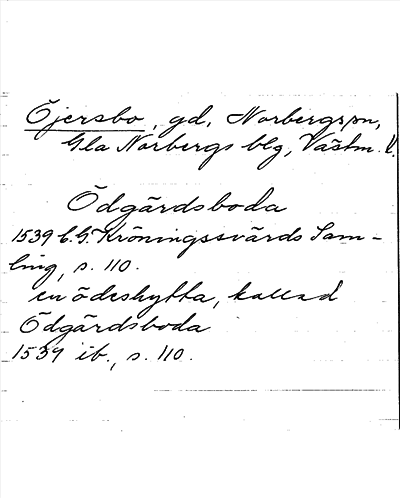 Öjersbo, gd, Norbergs sn,
Gla Norbergs blg, Västm.
Ödgårdsboda
1539 C.G. Kröningssvärds Sam-
ling, s. 110.
en ödeshytta, kallad
Ödgårdsboda
1539 ib., s. 110.